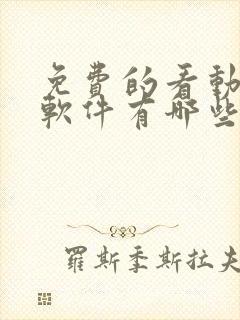 免費的看動
軟件有哪些
羅斯季斯拉夫